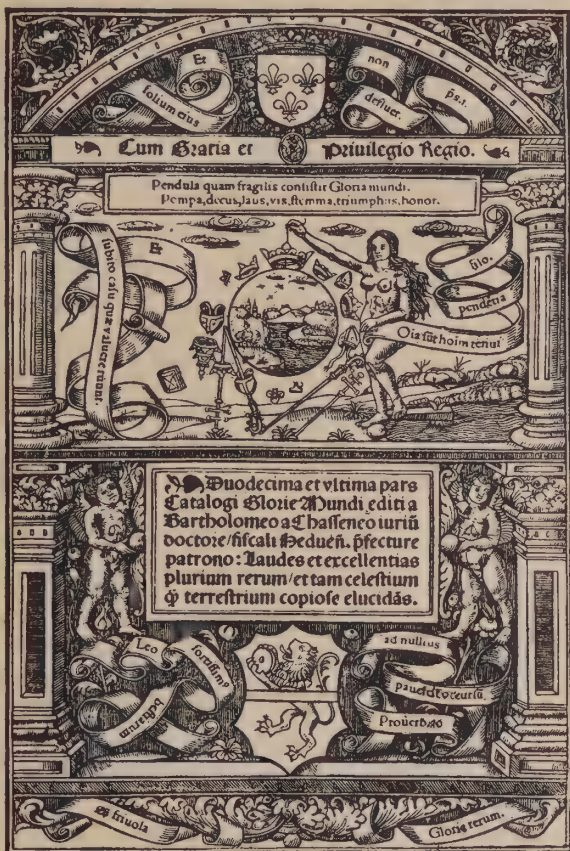 Et
non
folium eius
defluet.
p̄s.1.
Cum Gratia et Priuilegio Regio.
Pendula quam fragilis consistit Gloria mundi.
Pompa, decus, laus, vis, stemma, triumphus, honor.
Et
subito casu quæ valuere ruunt.
filo.
pendētia
Oīa sūt hoīm tenui
Duodecima et vltima pars
Catalogi Glorie Mundi editi a
Bartholomeo a Chasseneo iuriū
doctore/fiscali Heduēn. p̄fecture
patrono: Laudes et excellentias
plurium rerum/et tam celestium
q̄ terrestrium copiose elucidās.
Leo
fortissimꝰ
bestiarum
ad nullius
pauebit occursū.
Prouerb. 30
friuola
Gloria rerum.